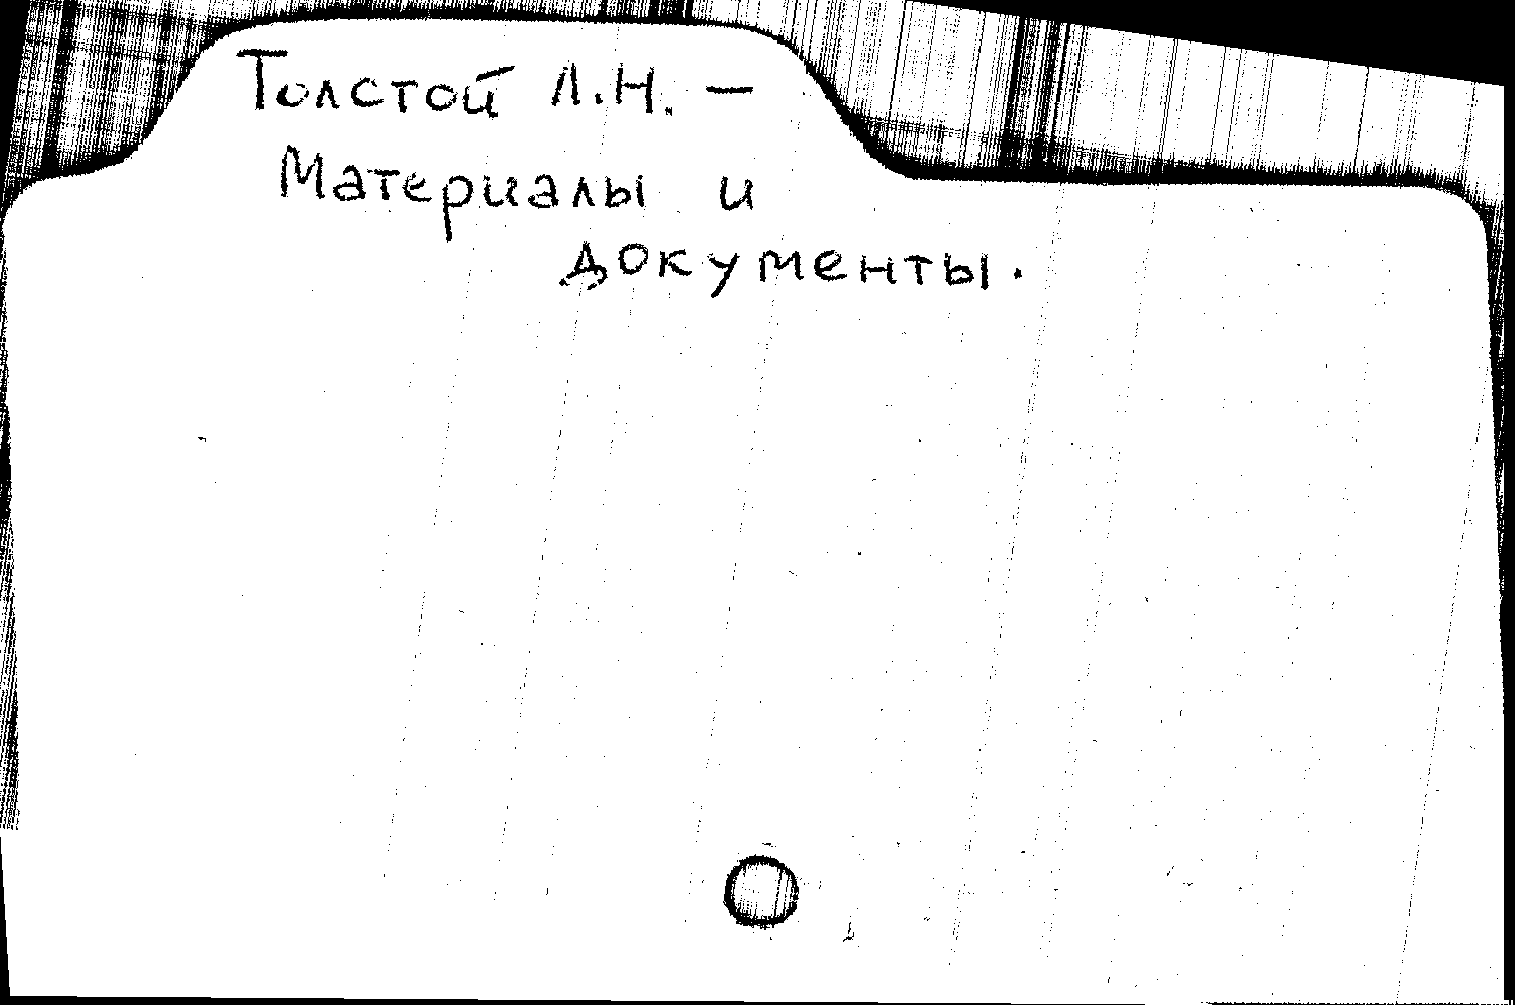 Толстой Л.Н. —
Материалы и
документы.